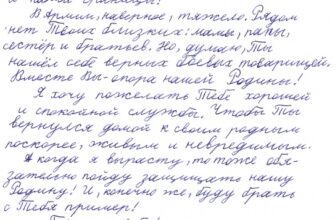 В Армии, наверное, тяжело. Рядом
нет Твоих близких: мамы, папы,
сестёр и братьев. Но, думаю, Ты
нашёл себе верных боевых товарищей.
Вместе Вы - опора нашей Родины!
Я хочу пожелать Тебе хорошей
и спокойной службы. Чтобы Ты
вернулся домой к своим родным
поскорее, живым и невредимым.
А когда я вырасту, то тоже обя-
зательно пойду защищать нашу
Родину! И, конечно же, буду брать
с Тебя пример!